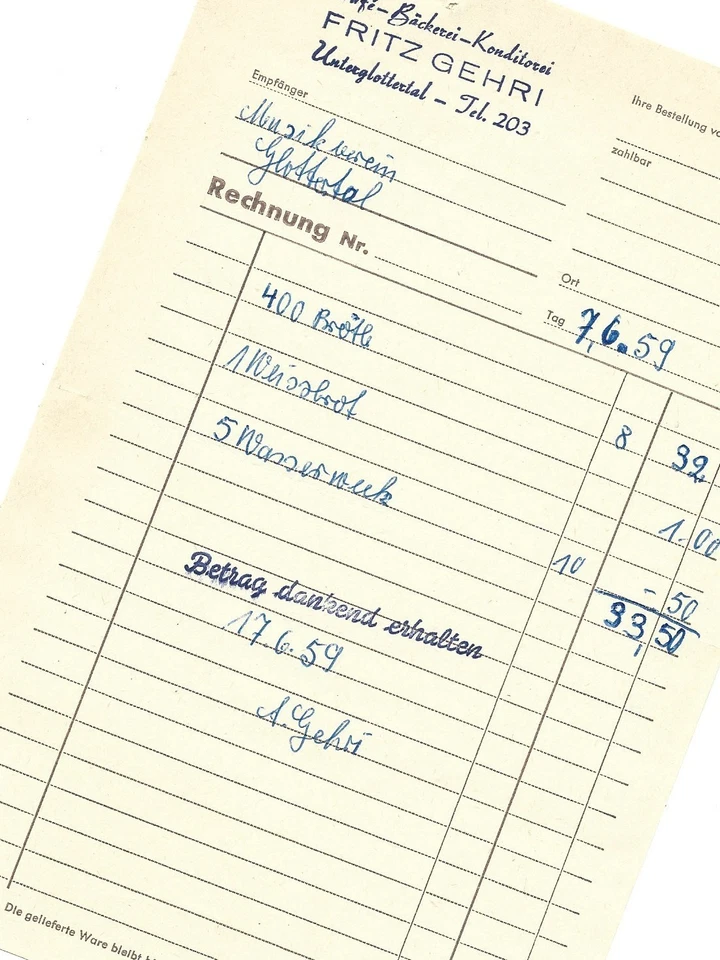 Café-Bäckerei-Konditorei
FRITZ GEHRI
Unterglottertal - Tel. 203
Empfänger
Musikverein
Glottertal
Ihre Bestellung
zahlbar
Rechnung Nr.
Ort
Tag 7.6.59
400 Brötle 8 32
1 Weissbrot 1.00
5 Wasserweck 10 - 50
33,50
Betrag dankend erhalten
17.6.59
A. Gehri
Die gelieferte Ware bleibt